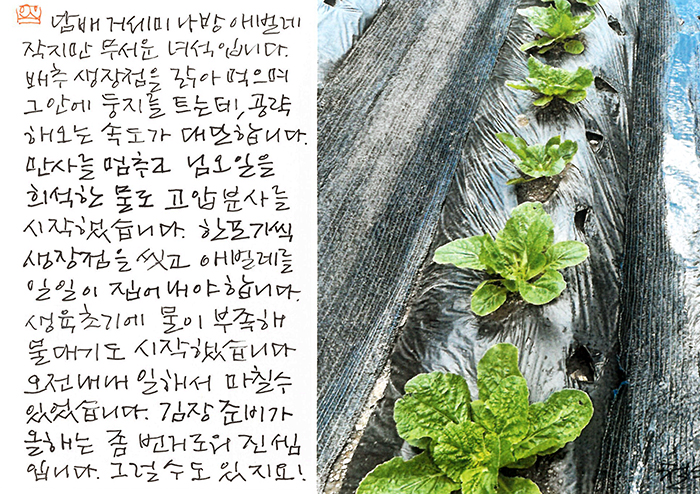 담배 거세미 나방 애벌레
작지만 무서운 녀석입니다.
배추 생장점을 갉아 먹으며
그안에 둥지를 트는데, 공략
해오는 속도가 대단합니다.
만사를 멈추고 님오일을
희석한 물로 고압분사를
시작했습니다. 한포기씩
생장점을 씻고 애벌레를
일일이 집어내야합니다.
생육초기에 물이 부족해
물대기도 시작했습니다
오전내내 일해서 마칠수
있었습니다. 김장 준비가
올해는 좀 번거로와 진 셈
입니다. 그럴수도 있지요!